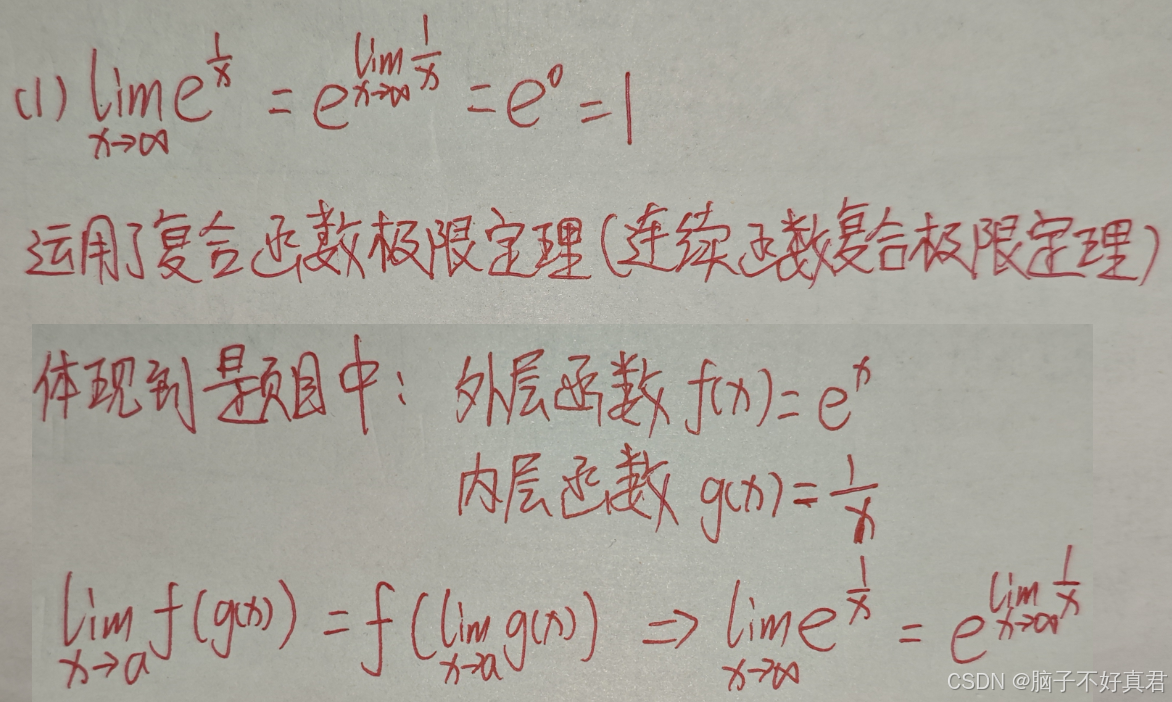 (1) lim_{x→∞} e^{1/x} = e^{lim_{x→∞} 1/x} = e^0 = 1
运用了复合函数极限定理(连续函数复合极限定理)
体现到题目中: 外层函数 f(x)=e^x
内层函数 g(x)=1/x
lim_{x→a} f(g(x)) = f(lim_{x→a} g(x)) ⇒ lim_{x→∞} e^{1/x} = e^{lim_{x→∞} 1/x}
CSDN @脑子不好真君